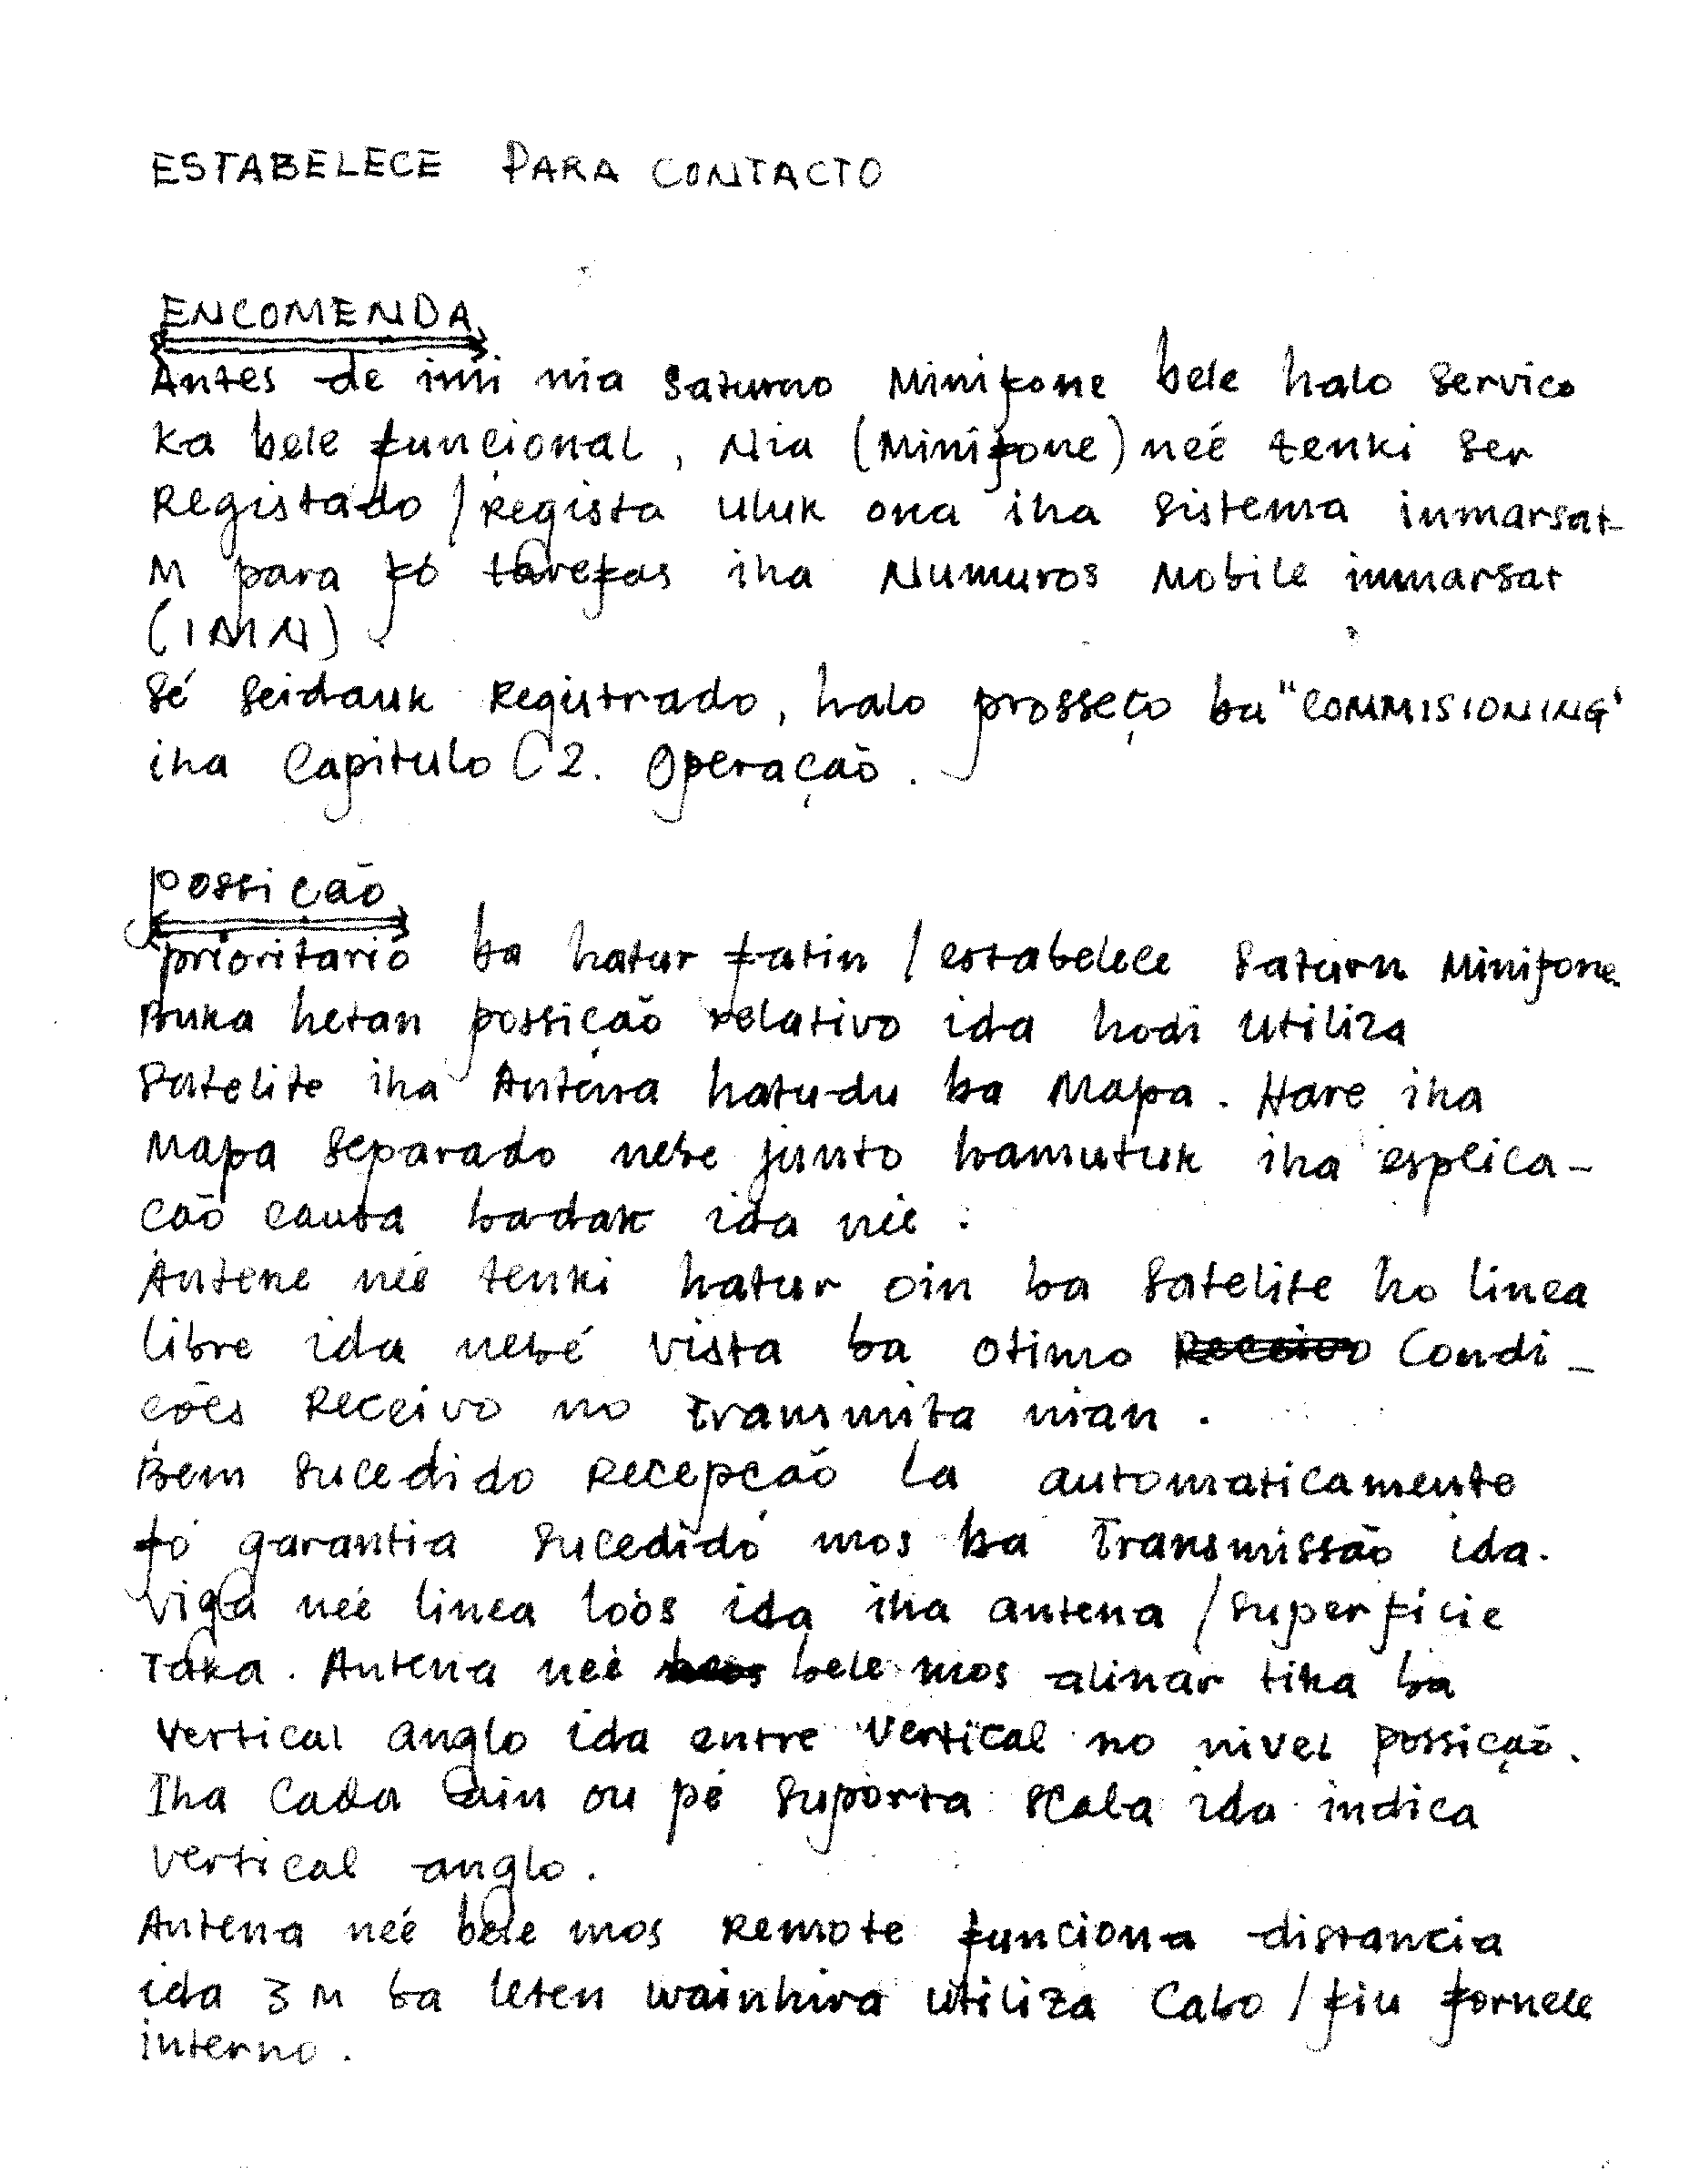 ESTABELECE PARA CONTACTO
ENCOMENDA
Antes de imi nia Saturno Minifone bele halo Servico
Ka bele funçional, Nia (Minifone) neé tenki Ser
Registado / Regista uluk ona iha Sistema inmarsat
M para fó tarefas iha Numuros Mobile inmarsat
(IMN).
Sé Seidauk Registrado, halo prosseço ba "COMMISIONING"
iha Capitulo C2. Operação.
possição
prioritario ba hatur fatin / estabelece Saturn Minifone
Buka hetan possição relativo ida hodi utiliza
Satelite iha Antena hatudu ba Mapa. Hare iha
Mapa Separado nebe junto hamutuk iha esplica-
ção causa badak ida neé.
Antene neé tenki hatur oin ba Satelite ho linea
libre ida nebé vista ba otimo Condi-
ções Receivo no transmita nian.
Bem Sucedido Recepção la automaticamente
fó garantia Sucedido mos ba Transmissão ida.
Vigia neé linea loós ida iha antena / Superficie
Taka. Antena neé bele mos alinar tiha ba
Vertical anglo ida entre Vertical no nivel possição.
Iha Cada ain ou pé Suporta Scala ida indica
Vertical anglo.
Antena neé bele mos Remote funciona distancia
ida 3 M ba leten wainhira utiliza Cabo / fiu fornece
interno.